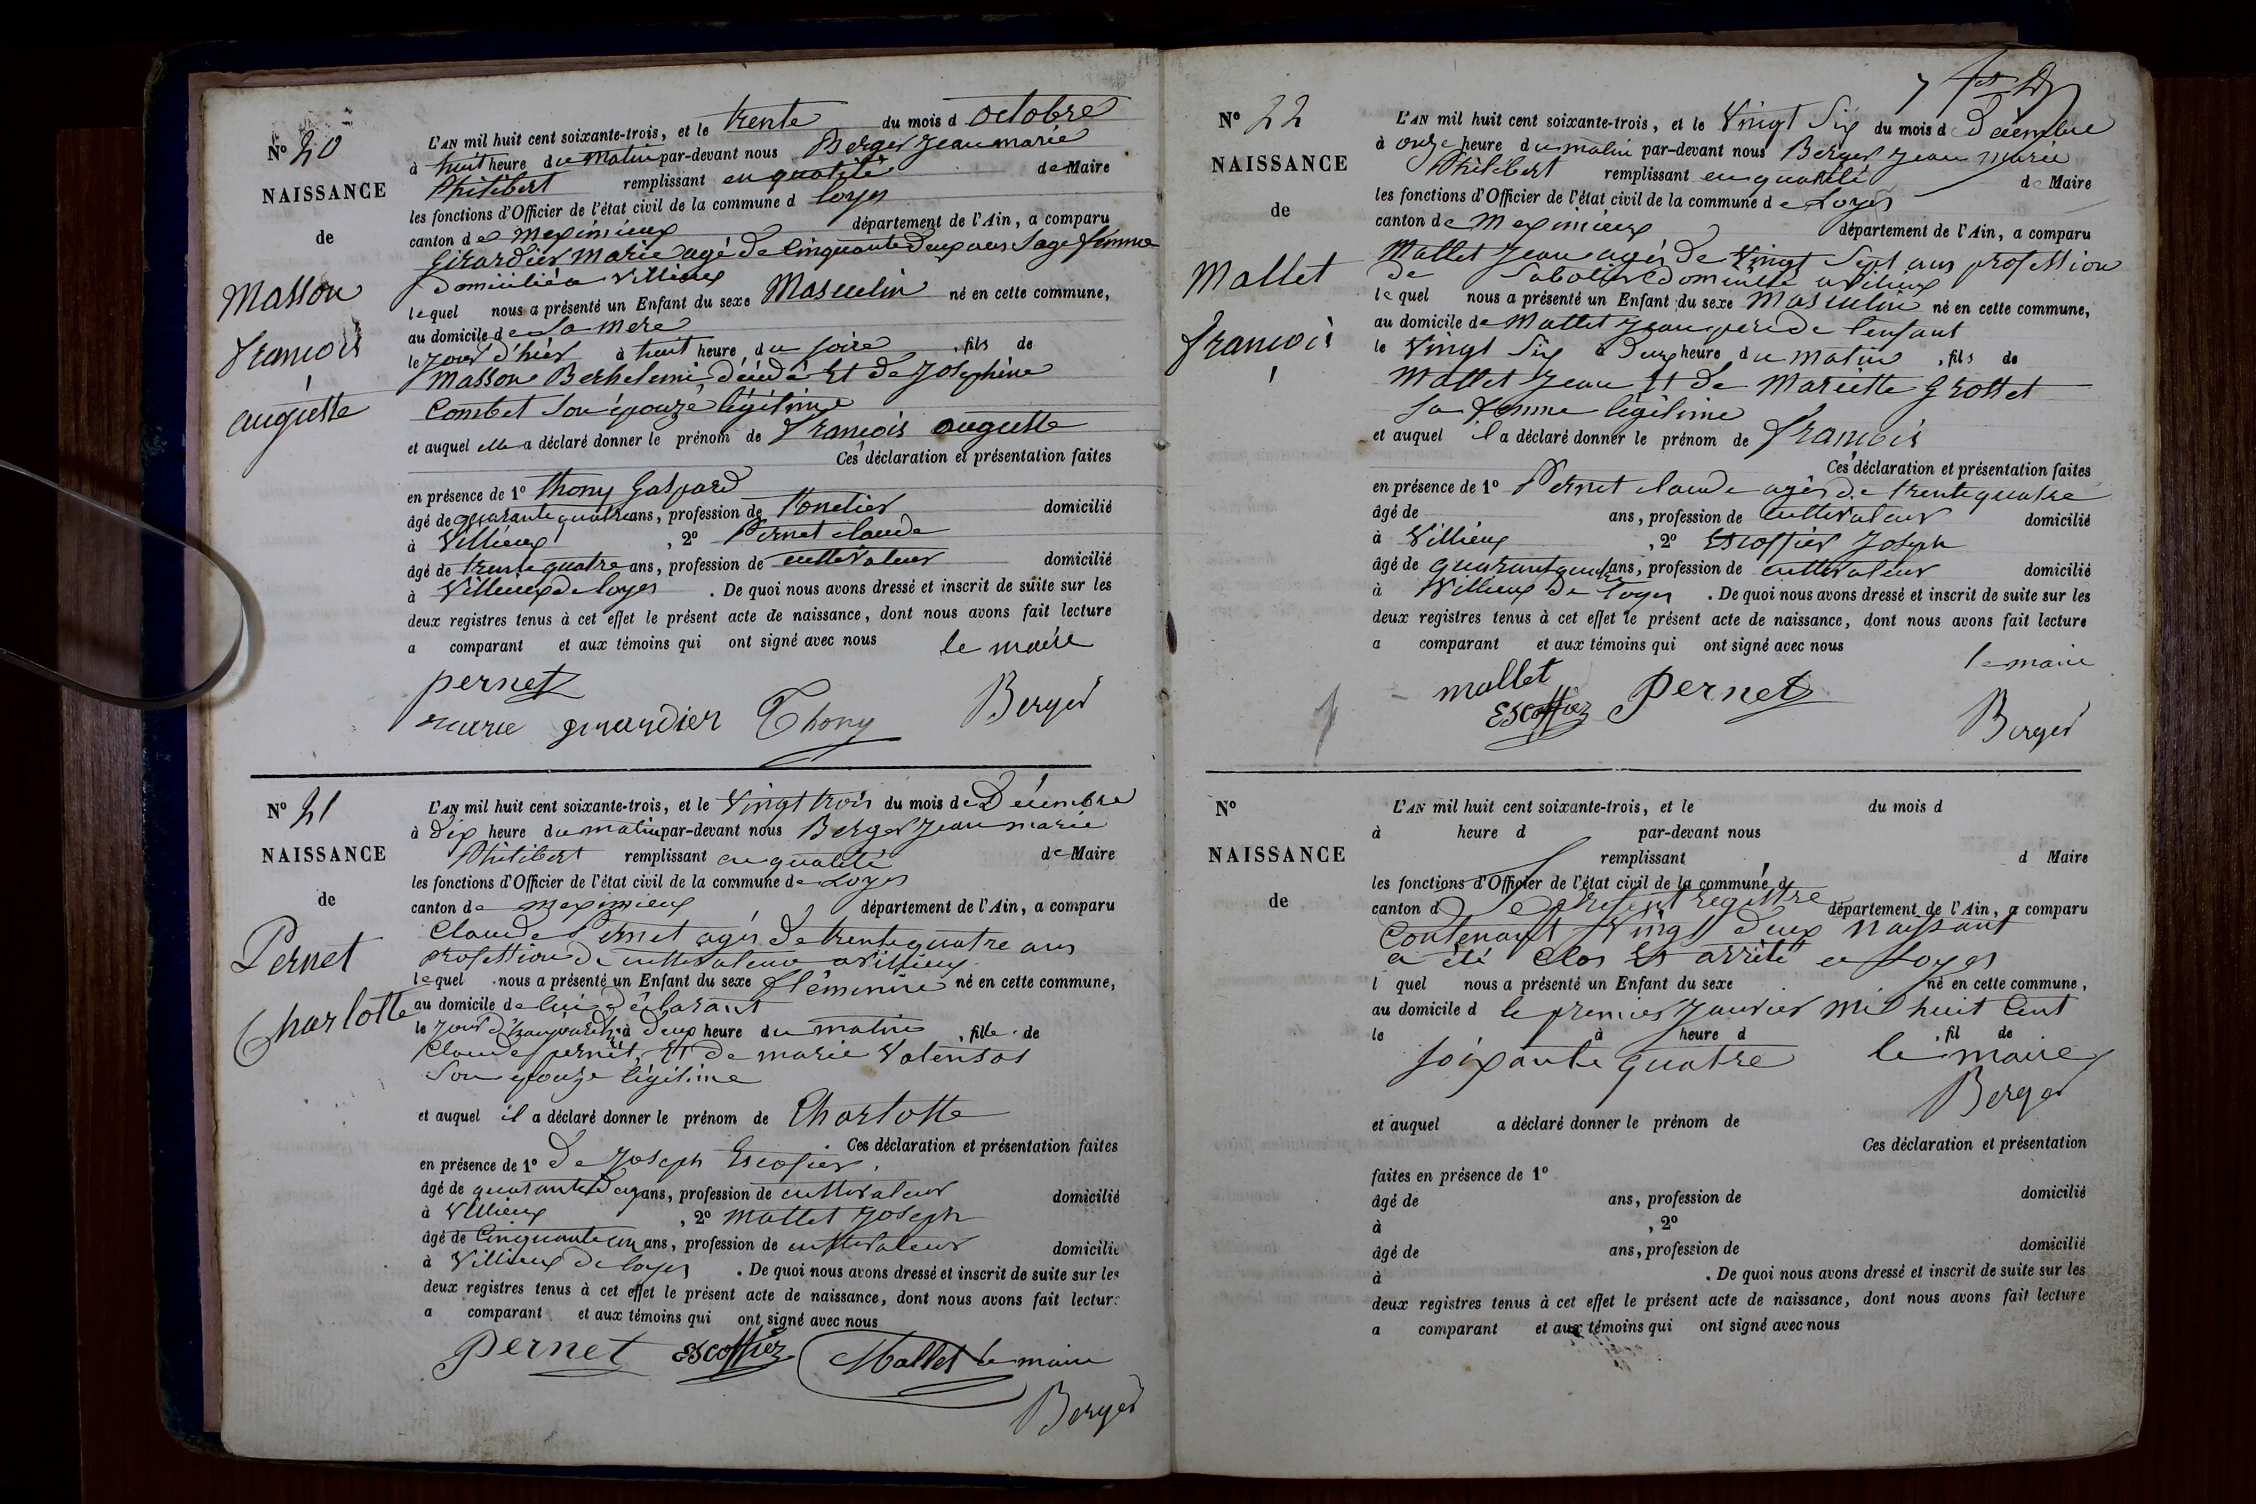 N° 20
NAISSANCE
de
Masson
francois
auguste
L'AN mil huit cent soixante-trois, et le trente du mois d octobre
à huit heure du Matin par-devant nous Berger Jean marie
Philibert remplissant en qualité de Maire
les fonctions d'Officier de l'état civil de la commune d loyes
canton de Meximieux département de l'Ain, a comparu
Girardier Marie agé de Cinquante Deux ans Sage femme
Domiciliéa Villieux
lequel nous a présenté un Enfant du sexe Masculin né en cette commune,
au domicile de Sa Mere
le jour d'hier à huit heure du soire, fils de
Masson Berthelemi décédé Et de Joséphine
Combet Son épouze légitime
et auquel elle a déclaré donner le prénom de François auguste
Ces déclaration et présentation faites
en présence de 1° Thony Gaspard
âgé de quarante quatre ans, profession de domicilié
à Villieux, 2° Pernet claude
âgé de trente quatre ans, profession de cultivateur domicilié
à Villieux de loyes. De quoi nous avons dressé et inscrit de suite sur les
deux registres tenus à cet effet le présent acte de naissance, dont nous avons fait lecture
a comparant et aux témoins qui ont signé avec nous
le maire
pernet
marie girardier Thony Berger
N° 21
NAISSANCE
de
Pernet
Charlotte
L'AN mil huit cent soixante-trois, et le Vingt trois du mois de Décembre
à dix heure du matin par-devant nous Berger Jean marie
Philibert remplissant en qualité de Maire
les fonctions d'Officier de l'état civil de la commune de Loyes
canton de meximieux département de l'Ain, a comparu
Claude Pernet agés de trente quatre ans
profession de cultivateur a villieux
lequel nous a présenté un Enfant du sexe féminine né en cette commune,
au domicile de lui déclarant
le jour à deux heure du matin, fille de
Claude pernet, Et de marie Valensos
Son epouze légitime
et auquel il a déclaré donner le prénom de Charlotte
Ces déclaration et présentation faites
en présence de 1° De Joseph Escofier
âgé de quarante ans, profession de cultivateur domicilié
à Villieux, 2° Mallet Joseph
âgé de Cinquante ans, profession de cultivateur domicilié
à Villieux De loyes. De quoi nous avons dressé et inscrit de suite sur les
deux registres tenus à cet effet le présent acte de naissance, dont nous avons fait lecture
a comparant et aux témoins qui ont signé avec nous
Pernet Escoffiez Mallet le maire
Berger
N° 22
NAISSANCE
de
Mallet
francois
L'AN mil huit cent soixante-trois, et le Vingt Six du mois d Décembre
à onze heure du matin par-devant nous Berger Jean marie
Philibert remplissant en qualité de Maire
les fonctions d'Officier de l'état civil de la commune de Loyes
canton de Meximieux département de l'Ain, a comparu
Mallet Jean agés de Vingt Sept ans profession
de Sabotier domicilié a Vilieux
lequel nous a présenté un Enfant du sexe Masculin né en cette commune,
au domicile de Mallet Jean pere de l'enfant
le Vingt Six à Deux heure du matin, fils de
Mallet Jean Et de Mariette Grottet
Sa femme légitime
et auquel il a déclaré donner le prénom de François
Ces déclaration et présentation faites
en présence de 1° Pernet claude agés de trente quatre
âgé de ans, profession de cultivateur domicilié
à Villieux, 2° Escoffier Joseph
âgé de ans, profession de cultivateur domicilié
à Villieux De Loyes. De quoi nous avons dressé et inscrit de suite sur les
deux registres tenus à cet effet le présent acte de naissance, dont nous avons fait lecture
a comparant et aux témoins qui ont signé avec nous
le maire
mallet
Escoffiez Pernet
Berger
N°
NAISSANCE
de
L'AN mil huit cent soixante-trois, et le du mois d
à heure d par-devant nous
remplissant d Maire
les fonctions d'Officier de l'état civil de la commune d
Le présent registre
canton d département de l'Ain, a comparu
Contenant Vingt deux naissant
a été Clos Et arrêté a Loyes
l quel nous a présenté un Enfant du sexe né en cette commune,
au domicile d le premier Janvier mil huit Cent
le à heure d, fil de
soixante quatre le maire
Berger
et auquel a déclaré donner le prénom de
Ces déclaration et présentation
faites en présence de 1°
âgé de ans, profession de domicilié
à, 2°
âgé de ans, profession de domicilié
à. De quoi nous avons dressé et inscrit de suite sur les
deux registres tenus à cet effet le présent acte de naissance, dont nous avons fait lecture
a comparant et aux témoins qui ont signé avec nous